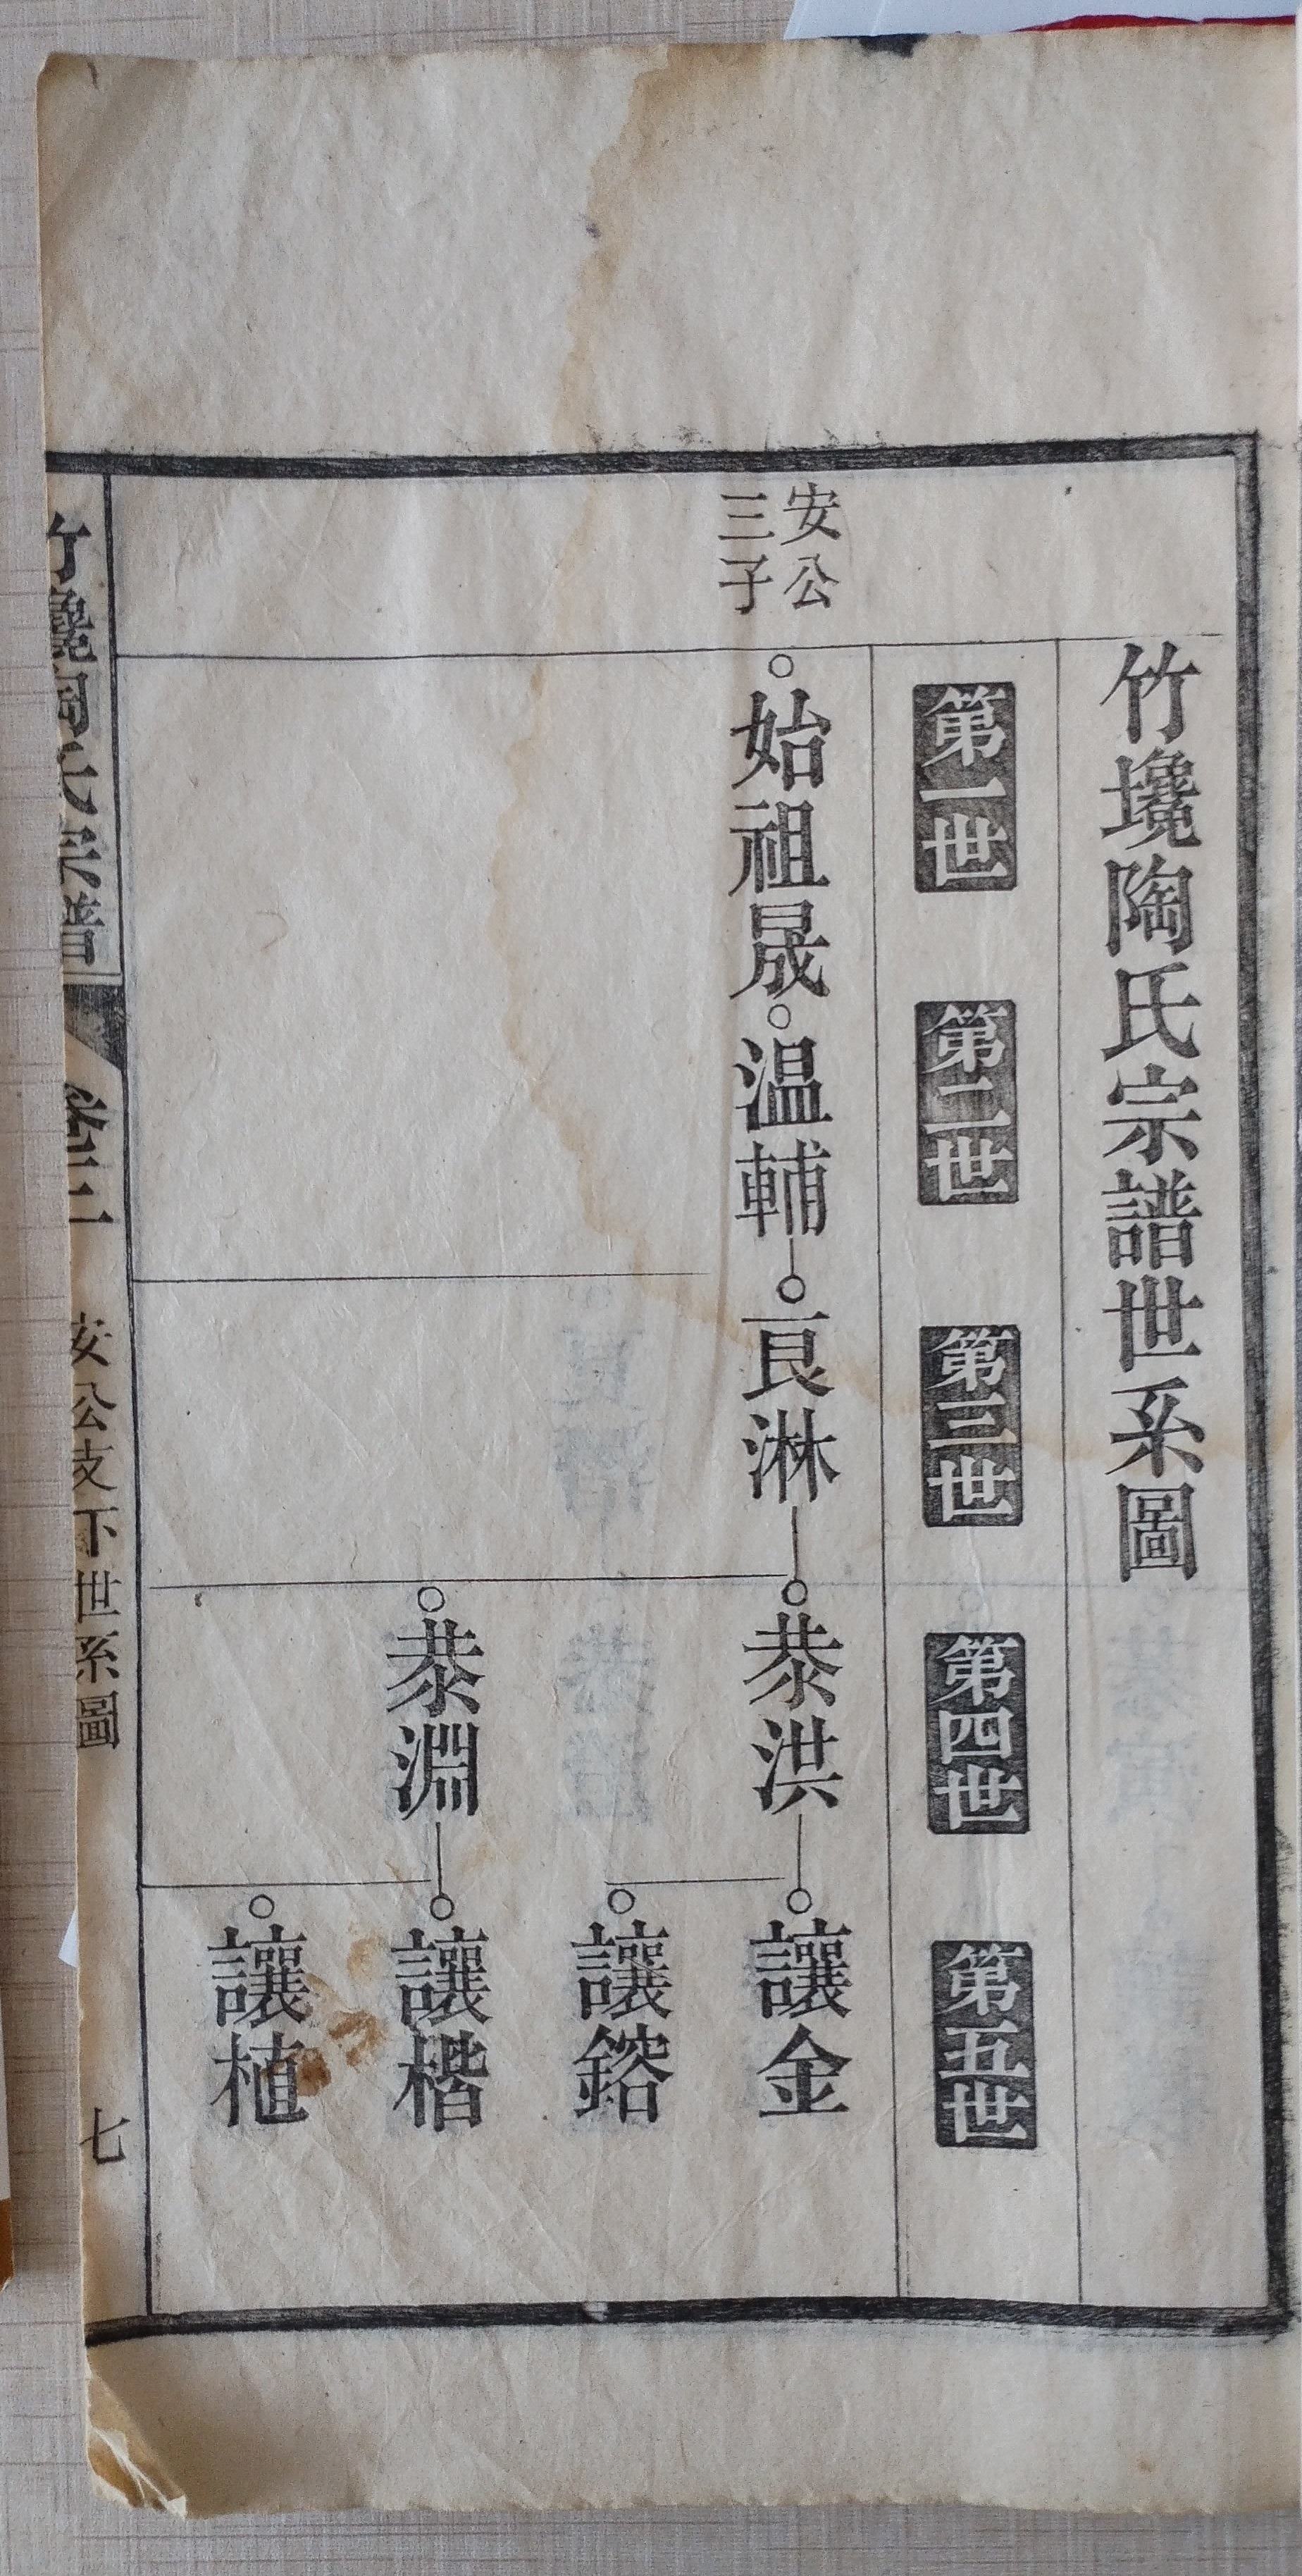 竹墋陶氏宗譜世系圖
第一世
第二世
第三世
第四世
第五世
安公
三子
始祖晟
温輔
良淋
恭洪
讓金
讓鎔
恭淵
讓楷
讓植
陶氏宗譜
卷三
安公支下世系圖
七